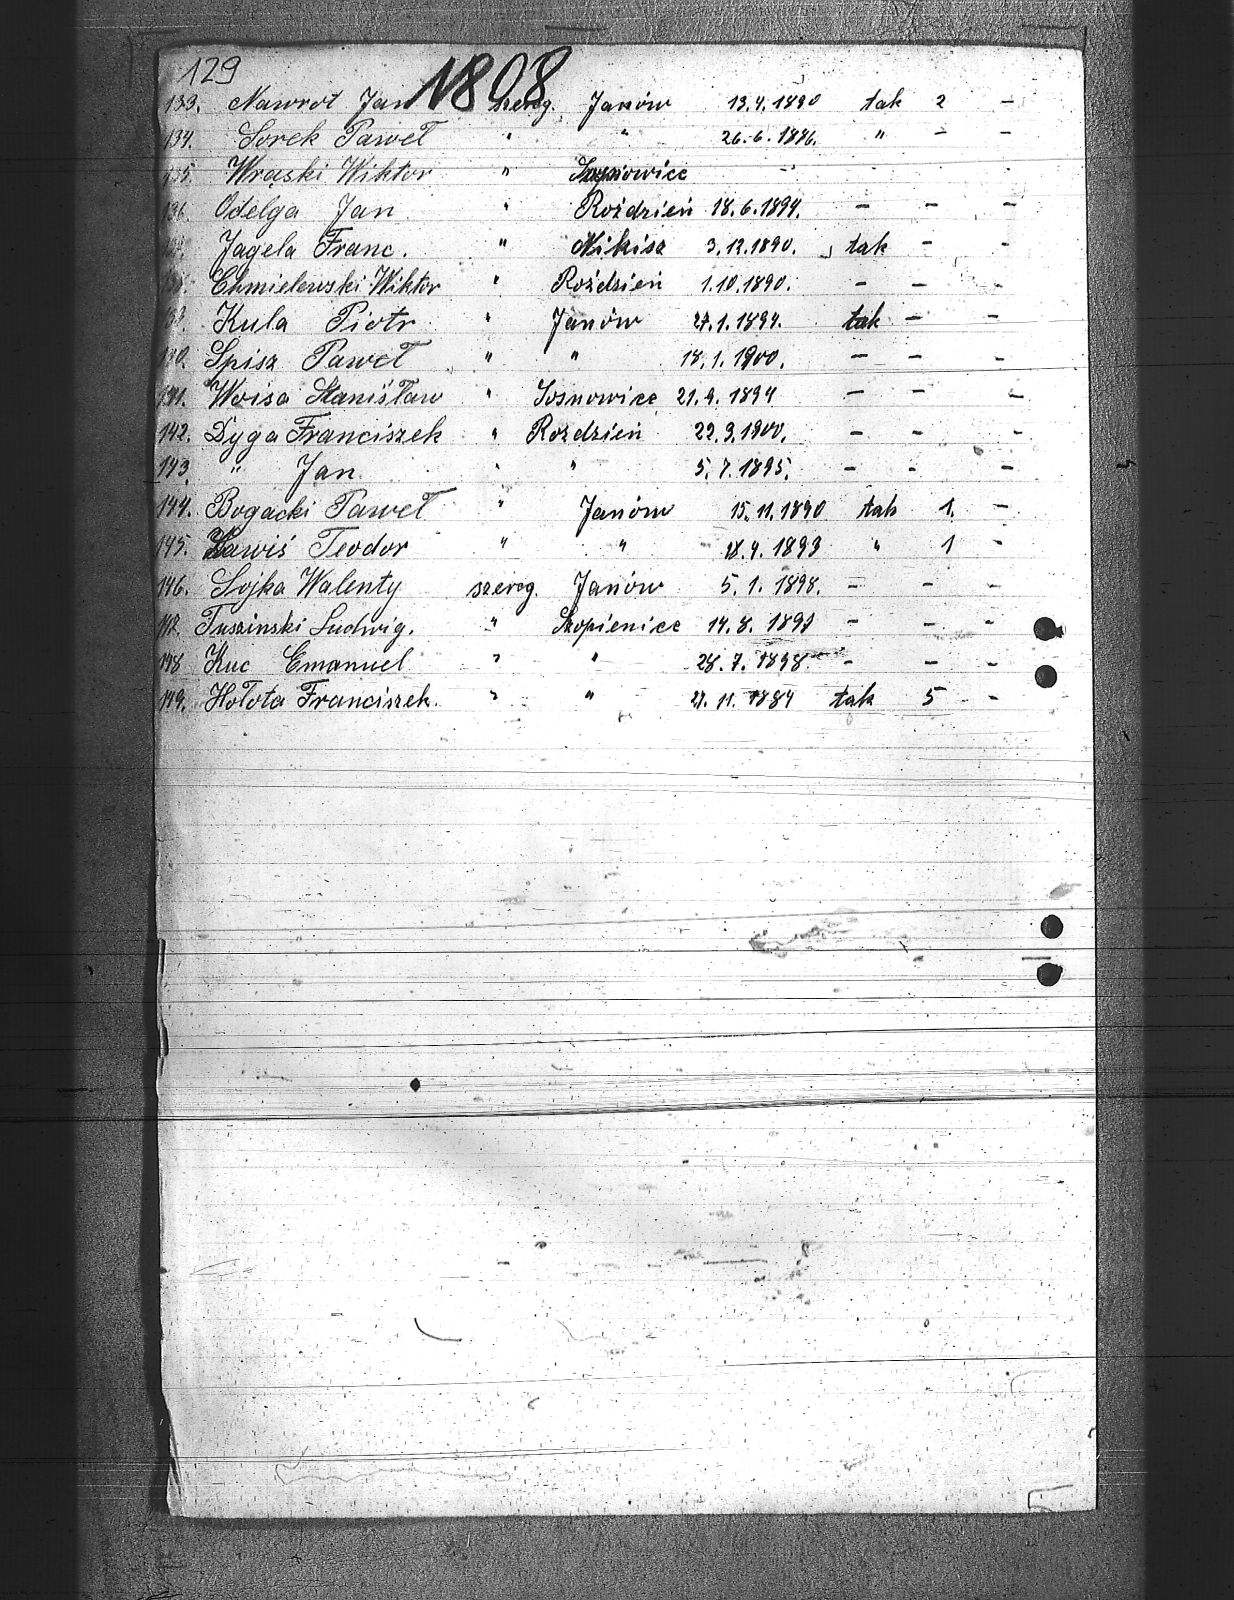 129
1808
133. Nawrot Jan szereg. Janów 13.4.1890 tak 2 –
134. Sorek Paweł " " 26.6.1886. " – –
135. Wraski Wiktor " Sosnowice – – –
136. Odelga Jan " Roździeń 18.6.1894. – – –
Jagela Franc. " Nikisz 3.12.1890. tak – –
Chmielewski Wiktor " Roździeń 1.10.1890. – – –
Kula Piotr " Janów 27.1.1894. tak – –
Spisz Paweł " " 18.1.1900. – – –
141. Woisa Stanisław " Sosnowice 21.9.1894 – – –
142. Dyga Franciszek " Rozdzień 22.3.1900. – – –
143. " Jan " " 5.7.1895. – – –
144. Bogacki Paweł " Janów 15.11.1890 tak 1. –
145. Teodor " " 18.4.1893 " 1 –
146. Sojka Walenty szereg. Janów 5.1.1898. – – –
147. Tuszinski Ludwig. " Szopienice 14.8.1897 – – –
148 Kuc Emanuel " " 28.7.1898 – – –
149. Hołota Franciszek. " " 21.11.1884 tak 5 –
5